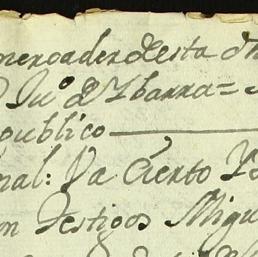 meroader desta
Juº de Ybarra =
publico
nal: Va Cierto
n Testigos Migu